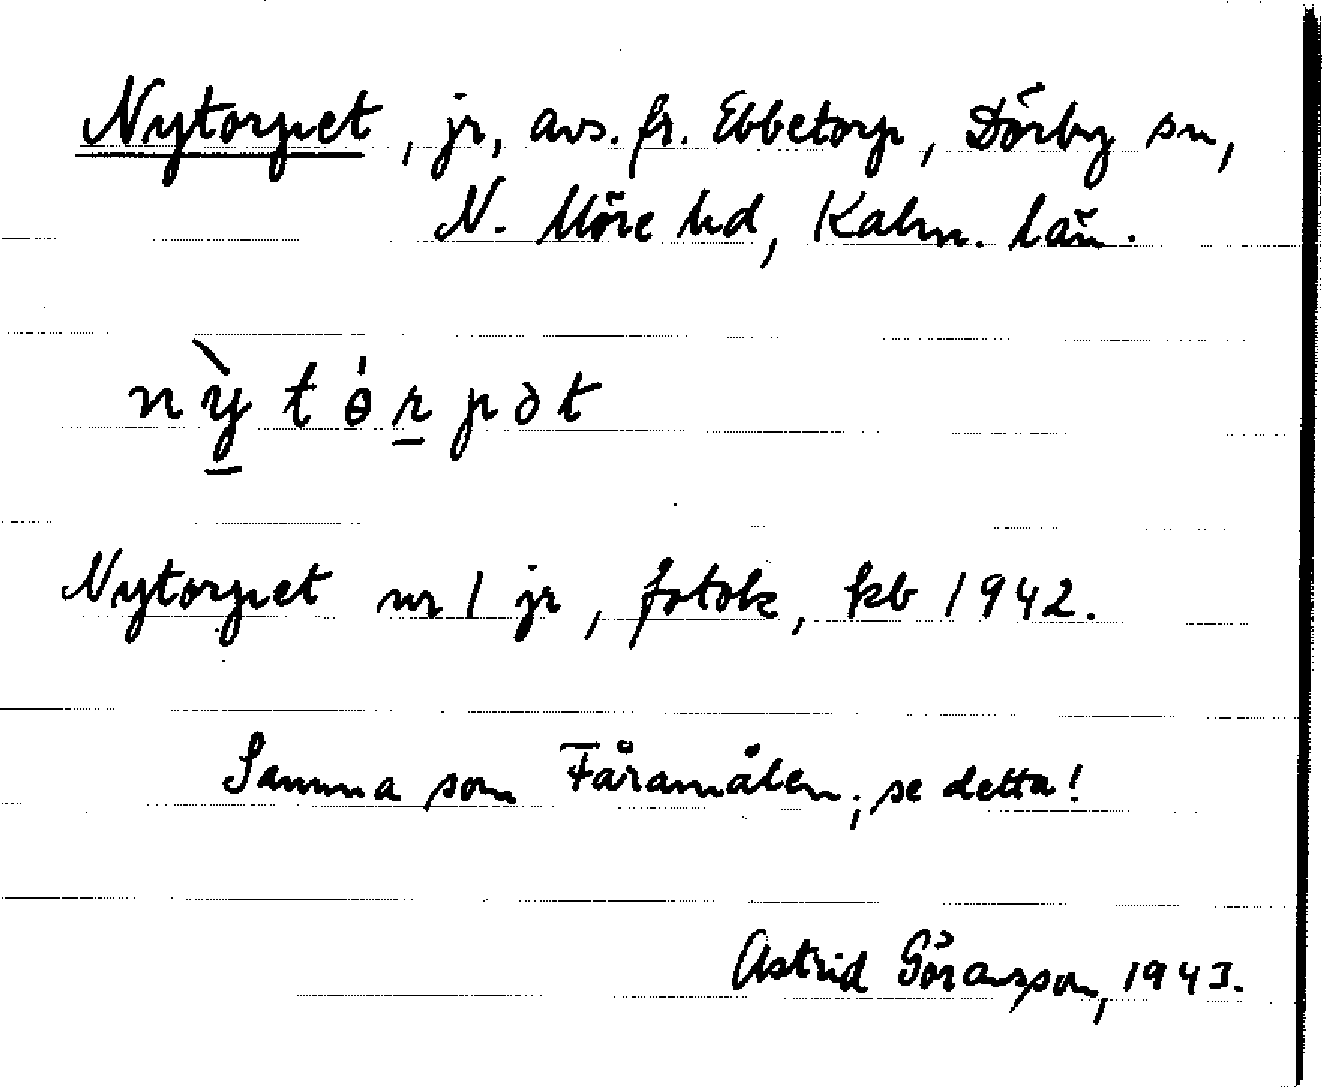 Nytorpet, jr, avs. fr. Ebbetorp, Dörby sn,
N. Möre hd, Kalm. län.
nỳ̠tɵ́r̠pət
Nytorpet nr 1 jr, fotok, kb 1942.
Samma som Fåramålen, se detta!
Astrid Göransson, 1943.